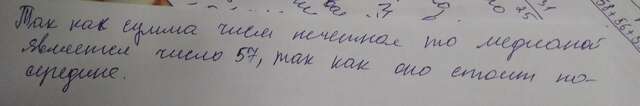 Так как сумма чисел нечетная то медианой
является число 57, так как оно стоит по-
середине.